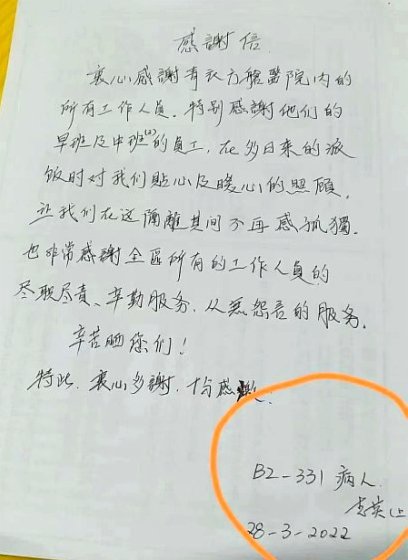 感謝信
衷心感謝青衣方艙醫院內的
所有工作人員。特别感謝他們的
早班及中班的員工,在多日来的派
飯时对我们貼心及暖心的照顧,
让我们在这隔離其间不再感孤獨。
也非常感謝全區所有的工作人員的
尽职尽责、辛勤服务,从無怨言的服务。
辛苦晒您们!
特此,衷心多謝,十分感
B2-331 病人
李英
28-3-2022